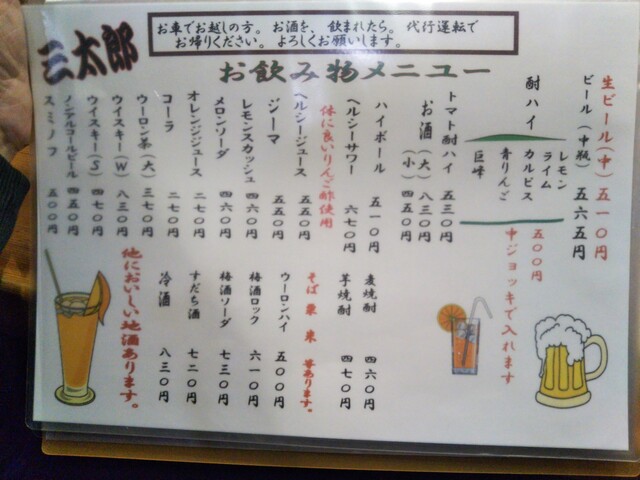 三太郎
お車でお越しの方。お酒を、飲まれたら。代行運転で
お帰りください。よろしくお願いします。
お飲み物メニュー
生ビール(中) 五一〇円
ビール(中瓶) 五六五円
酎ハイ
レモン
ライム
カルピス
青りんご
巨峰
五〇〇円
中ジョッキで入れます
トマト酎ハイ 五三〇円
お酒(大) 八三〇円
(小) 四五〇円
ハイボール 五一〇円
ヘルシーサワー 六七〇円
体に良いりんご酢使用
ヘルシージュース 五五〇円
ジーマ 五五〇円
レモンスカッシュ 四六〇円
メロンソーダ 四六〇円
オレンジジュース 二七〇円
コーラ 二七〇円
ウーロン茶(大) 三七〇円
ウイスキー(W) 八三〇円
ウイスキー(S) 四七〇円
ノンアルコールビール 四五〇円
スミノフ 五〇〇円
麦焼酎 四六〇円
芋焼酎 四七〇円
そば 栗 米 等あります。
ウーロンハイ 五〇〇円
梅酒ロック 六一〇円
梅酒ソーダ 七三〇円
すだち酒 七二〇円
冷酒 八三〇円
他においしい地酒あります。